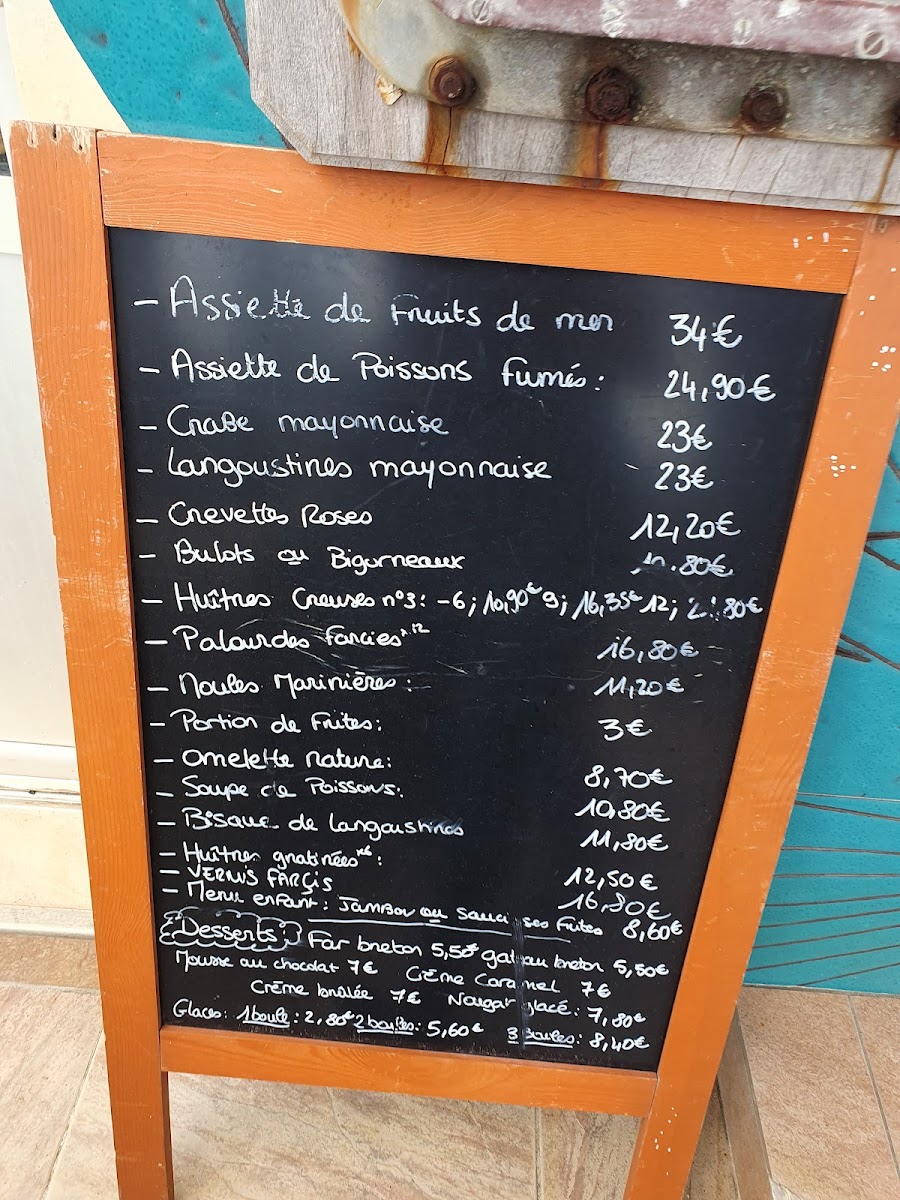 - Assiette de Fruits de mer 34€
- Assiette de Poissons fumés : 24,90€
- Crabe mayonnaise 23€
- Langoustines mayonnaise 23€
- Crevettes Roses 12,20€
- Bulots ou Bigorneaux 10.80€
- Huîtres Creuses n°3: -6; 10,90€ 9; 16,35€ 12; 21,80€
- Palourdes farcies x12 16,80€
- Moules Marinières : 11,20€
- Portion de Frites : 3€
- Omelette nature : 8,70€
- Soupe de Poissons : 10,80€
- Bisque de langoustines 11,80€
- Huîtres gratinées x6 : 12,50€
- VERNIS FARÇIS 16,80€
- Menu enfant : Jambon ou Saucisses frites 8,60€
Desserts : Far breton 5,50€ gateau breton 5,50€
Mousse au chocolat 7€ Crème Caramel 7€
Crème brûlée 7€ Nougat glacé : 7,80€
Glaces : 1 boule : 2,80€ 2 boules : 5,60€ 3 Boules : 8,40€